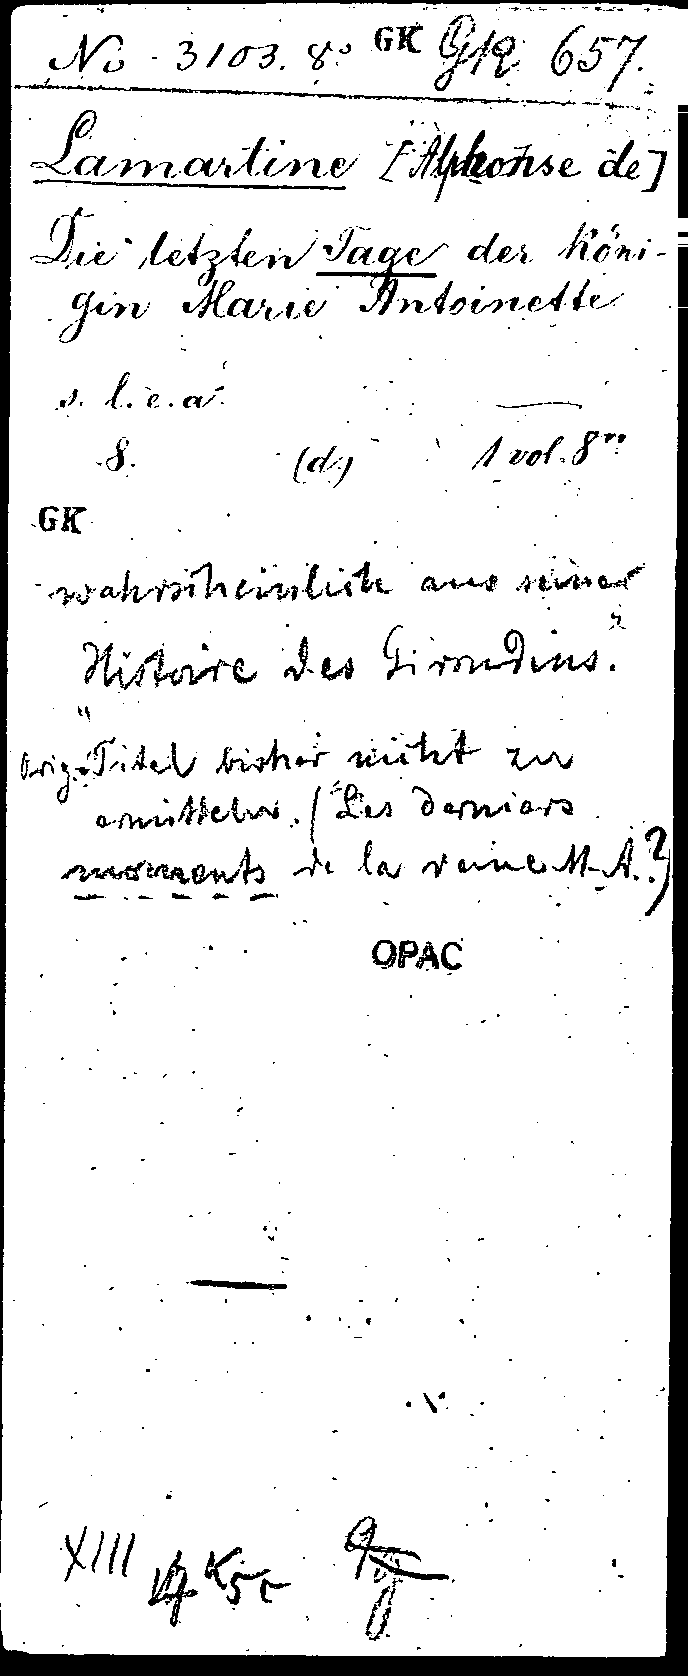 No. 3103. 8° GK G12 657.
Lamartine [Alphonse de]
Die letzten Tage der Köni-
gin Marie Antoinette
s. l. e. a.
8. (d.) 1 vol. 8vo
GK
wahrscheinlich aus seiner
"Histoire des Girondins."
Orig.-Titel bisher nicht zu
ermitteln. (Les derniers
moments de la reine M. A.?)
OPAC
XIII